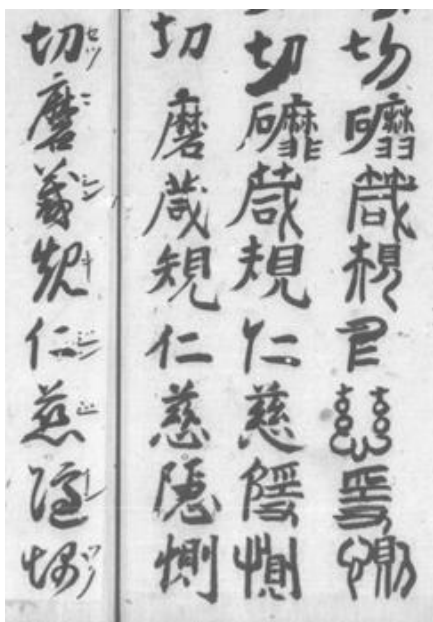 切磨箴規仁慈隱惻
切磨箴規仁慈隱惻
切磨箴規仁慈隱惻
切磨箴規仁慈隱惻
セツ
シン